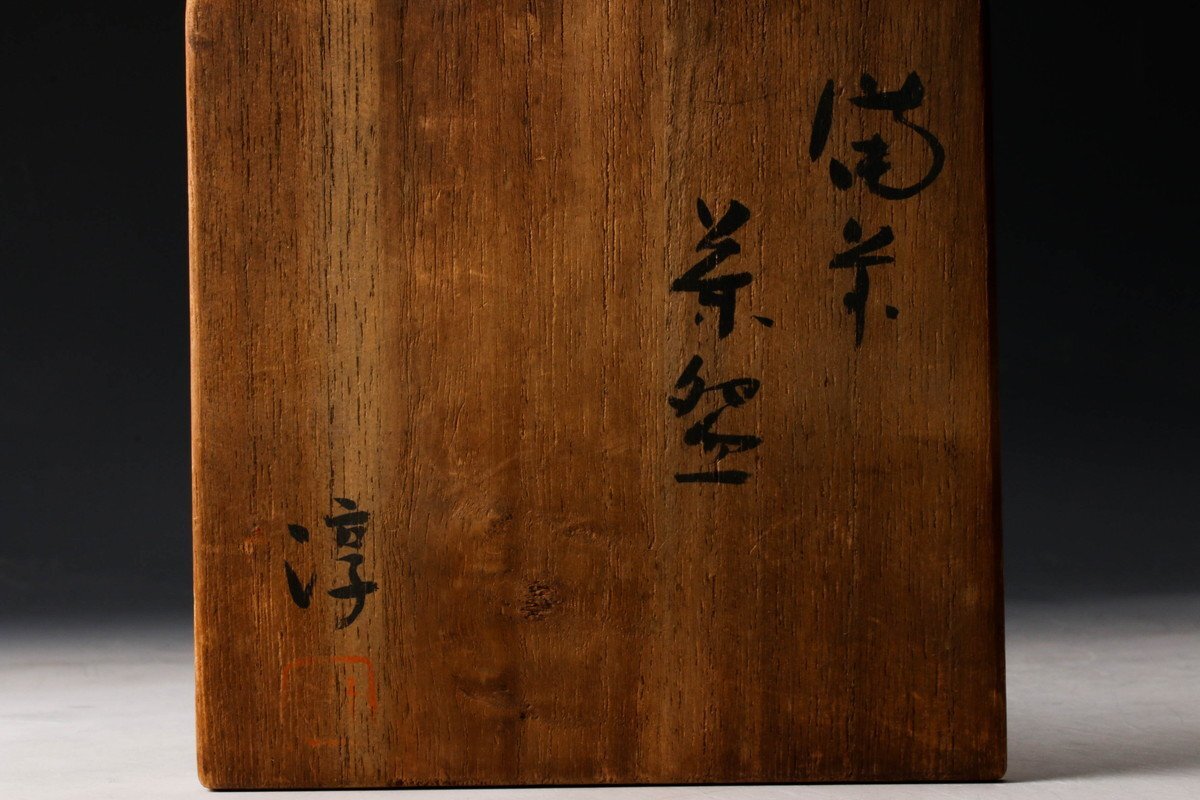 備前
茶盌
淳